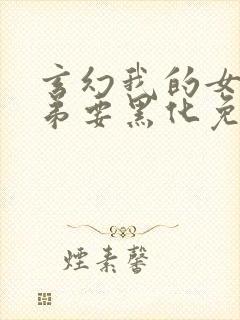 玄幻我的女
弟要黑化免
煙素馨